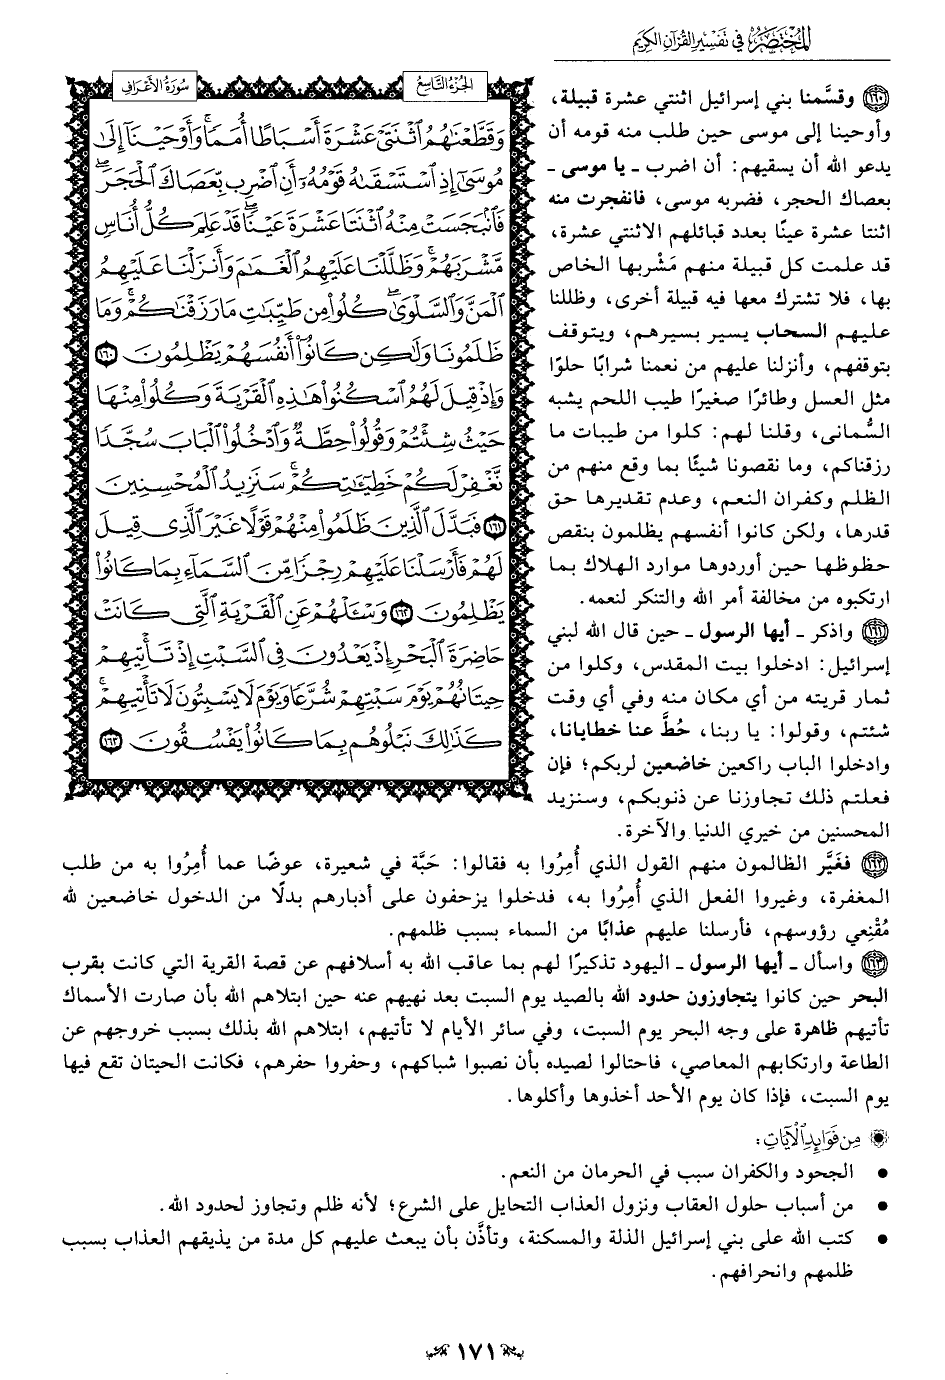 المختصر في تفسير القرآن الكريم
الجزء التاسع
سورة الأعراف
وَقَطَّعْنَٰهُمُ ٱثْنَتَىْ عَشْرَةَ أَسْبَاطًا أُمَمًا ۚ وَأَوْحَيْنَآ إِلَىٰ
مُوسَىٰٓ إِذِ ٱسْتَسْقَىٰهُ قَوْمُهُۥٓ أَنِ ٱضْرِب بِّعَصَاكَ ٱلْحَجَرَ ۖ
فَٱنۢبَجَسَتْ مِنْهُ ٱثْنَتَا عَشْرَةَ عَيْنًا ۖ قَدْ عَلِمَ كُلُّ أُنَاسٍ
مَّشْرَبَهُمْ ۚ وَظَلَّلْنَا عَلَيْهِمُ ٱلْغَمَٰمَ وَأَنزَلْنَا عَلَيْهِمُ
ٱلْمَنَّ وَٱلسَّلْوَىٰ ۖ كُلُوا۟ مِن طَيِّبَٰتِ مَا رَزَقْنَٰكُمْ ۚ وَمَا
ظَلَمُونَا وَلَٰكِن كَانُوٓا۟ أَنفُسَهُمْ يَظْلِمُونَ ١٦٠
وَإِذْ قِيلَ لَهُمُ ٱسْكُنُوا۟ هَٰذِهِ ٱلْقَرْيَةَ وَكُلُوا۟ مِنْهَا
حَيْثُ شِئْتُمْ وَقُولُوا۟ حِطَّةٌ وَٱدْخُلُوا۟ ٱلْبَابَ سُجَّدًا
نَّغْفِرْ لَكُمْ خَطِيٓـَٰٔتِكُمْ ۚ سَنَزِيدُ ٱلْمُحْسِنِينَ
١٦١ فَبَدَّلَ ٱلَّذِينَ ظَلَمُوا۟ مِنْهُمْ قَوْلًا غَيْرَ ٱلَّذِى قِيلَ
لَهُمْ فَأَرْسَلْنَا عَلَيْهِمْ رِجْزًا مِّنَ ٱلسَّمَآءِ بِمَا كَانُوا۟
يَظْلِمُونَ ١٦٢ وَسْـَٔلْهُمْ عَنِ ٱلْقَرْيَةِ ٱلَّتِى كَانَتْ
حَاضِرَةَ ٱلْبَحْرِ إِذْ يَعْدُونَ فِى ٱلسَّبْتِ إِذْ تَأْتِيهِمْ
حِيتَانُهُمْ يَوْمَ سَبْتِهِمْ شُرَّعًا وَيَوْمَ لَا يَسْبِتُونَ لَا تَأْتِيهِمْ ۚ
كَذَٰلِكَ نَبْلُوهُم بِمَا كَانُوا۟ يَفْسُقُونَ ١٦٣
١٦٠ وقسَّمنا بني إسرائيل اثنتي عشرة قبيلة،
وأوحينا إلى موسى حين طلب منه قومه أن
يدعو الله أن يسقيهم: أن اضرب ـ يا موسى ـ
بعصاك الحجر، فضربه موسى، فانفجرت منه
اثنتا عشرة عينًا بعدد قبائلهم الاثنتي عشرة،
قد علمت كل قبيلة منهم مَشْربها الخاص
بها، فلا تشترك معها فيه قبيلة أخرى، وظللنا
عليهم السحاب يسير بسيرهم، ويتوقف
بتوقفهم، وأنزلنا عليهم من نعمنا شرابًا حلوًا
مثل العسل وطائرًا صغيرًا طيب اللحم يشبه
السُّمانى، وقلنا لهم: كلوا من طيبات ما
رزقناكم، وما نقصونا شيئًا بما وقع منهم من
الظلم وكفران النعم، وعدم تقديرها حق
قدرها، ولكن كانوا أنفسهم يظلمون بنقص
حظوظها حين أوردوها موارد الهلاك بما
ارتكبوه من مخالفة أمر الله والتنكر لنعمه.
١٦١ واذكر ـ أيها الرسول ـ حين قال الله لبني
إسرائيل: ادخلوا بيت المقدس، وكلوا من
ثمار قريته من أي مكان منه وفي أي وقت
شئتم، وقولوا: يا ربنا، حُطَّ عنا خطايانا،
وادخلوا الباب راكعين خاضعين لربكم؛ فإن
فعلتم ذلك تجاوزنا عن ذنوبكم، وسنزيد
المحسنين من خيري الدنيا والآخرة.
١٦٢ فغَيَّر الظالمون منهم القول الذي أُمِرُوا به فقالوا: حَبَّة في شعيرة، عوضًا عما أُمِرُوا به من طلب
المغفرة، وغيروا الفعل الذي أُمِرُوا به، فدخلوا يزحفون على أدبارهم بدلًا من الدخول خاضعين لله
مُقْنِعي رؤوسهم، فأرسلنا عليهم عذابًا من السماء بسبب ظلمهم.
١٦٣ واسأل ـ أيها الرسول ـ اليهود تذكيرًا لهم بما عاقب الله به أسلافهم عن قصة القرية التي كانت بقرب
البحر حين كانوا يتجاوزون حدود الله بالصيد يوم السبت بعد نهيهم عنه حين ابتلاهم الله بأن صارت الأسماك
تأتيهم ظاهرة على وجه البحر يوم السبت، وفي سائر الأيام لا تأتيهم، ابتلاهم الله بذلك بسبب خروجهم عن
الطاعة وارتكابهم المعاصي، فاحتالوا لصيده بأن نصبوا شباكهم، وحفروا حفرهم، فكانت الحيتان تقع فيها
يوم السبت، فإذا كان يوم الأحد أخذوها وأكلوها.
من فوائد الآيات:
• الجحود والكفران سبب في الحرمان من النعم.
• من أسباب حلول العقاب ونزول العذاب التحايل على الشرع؛ لأنه ظلم وتجاوز لحدود الله.
• كتب الله على بني إسرائيل الذلة والمسكنة، وتأذَّن بأن يبعث عليهم كل مدة من يذيقهم العذاب بسبب
ظلمهم وانحرافهم.
١٧١